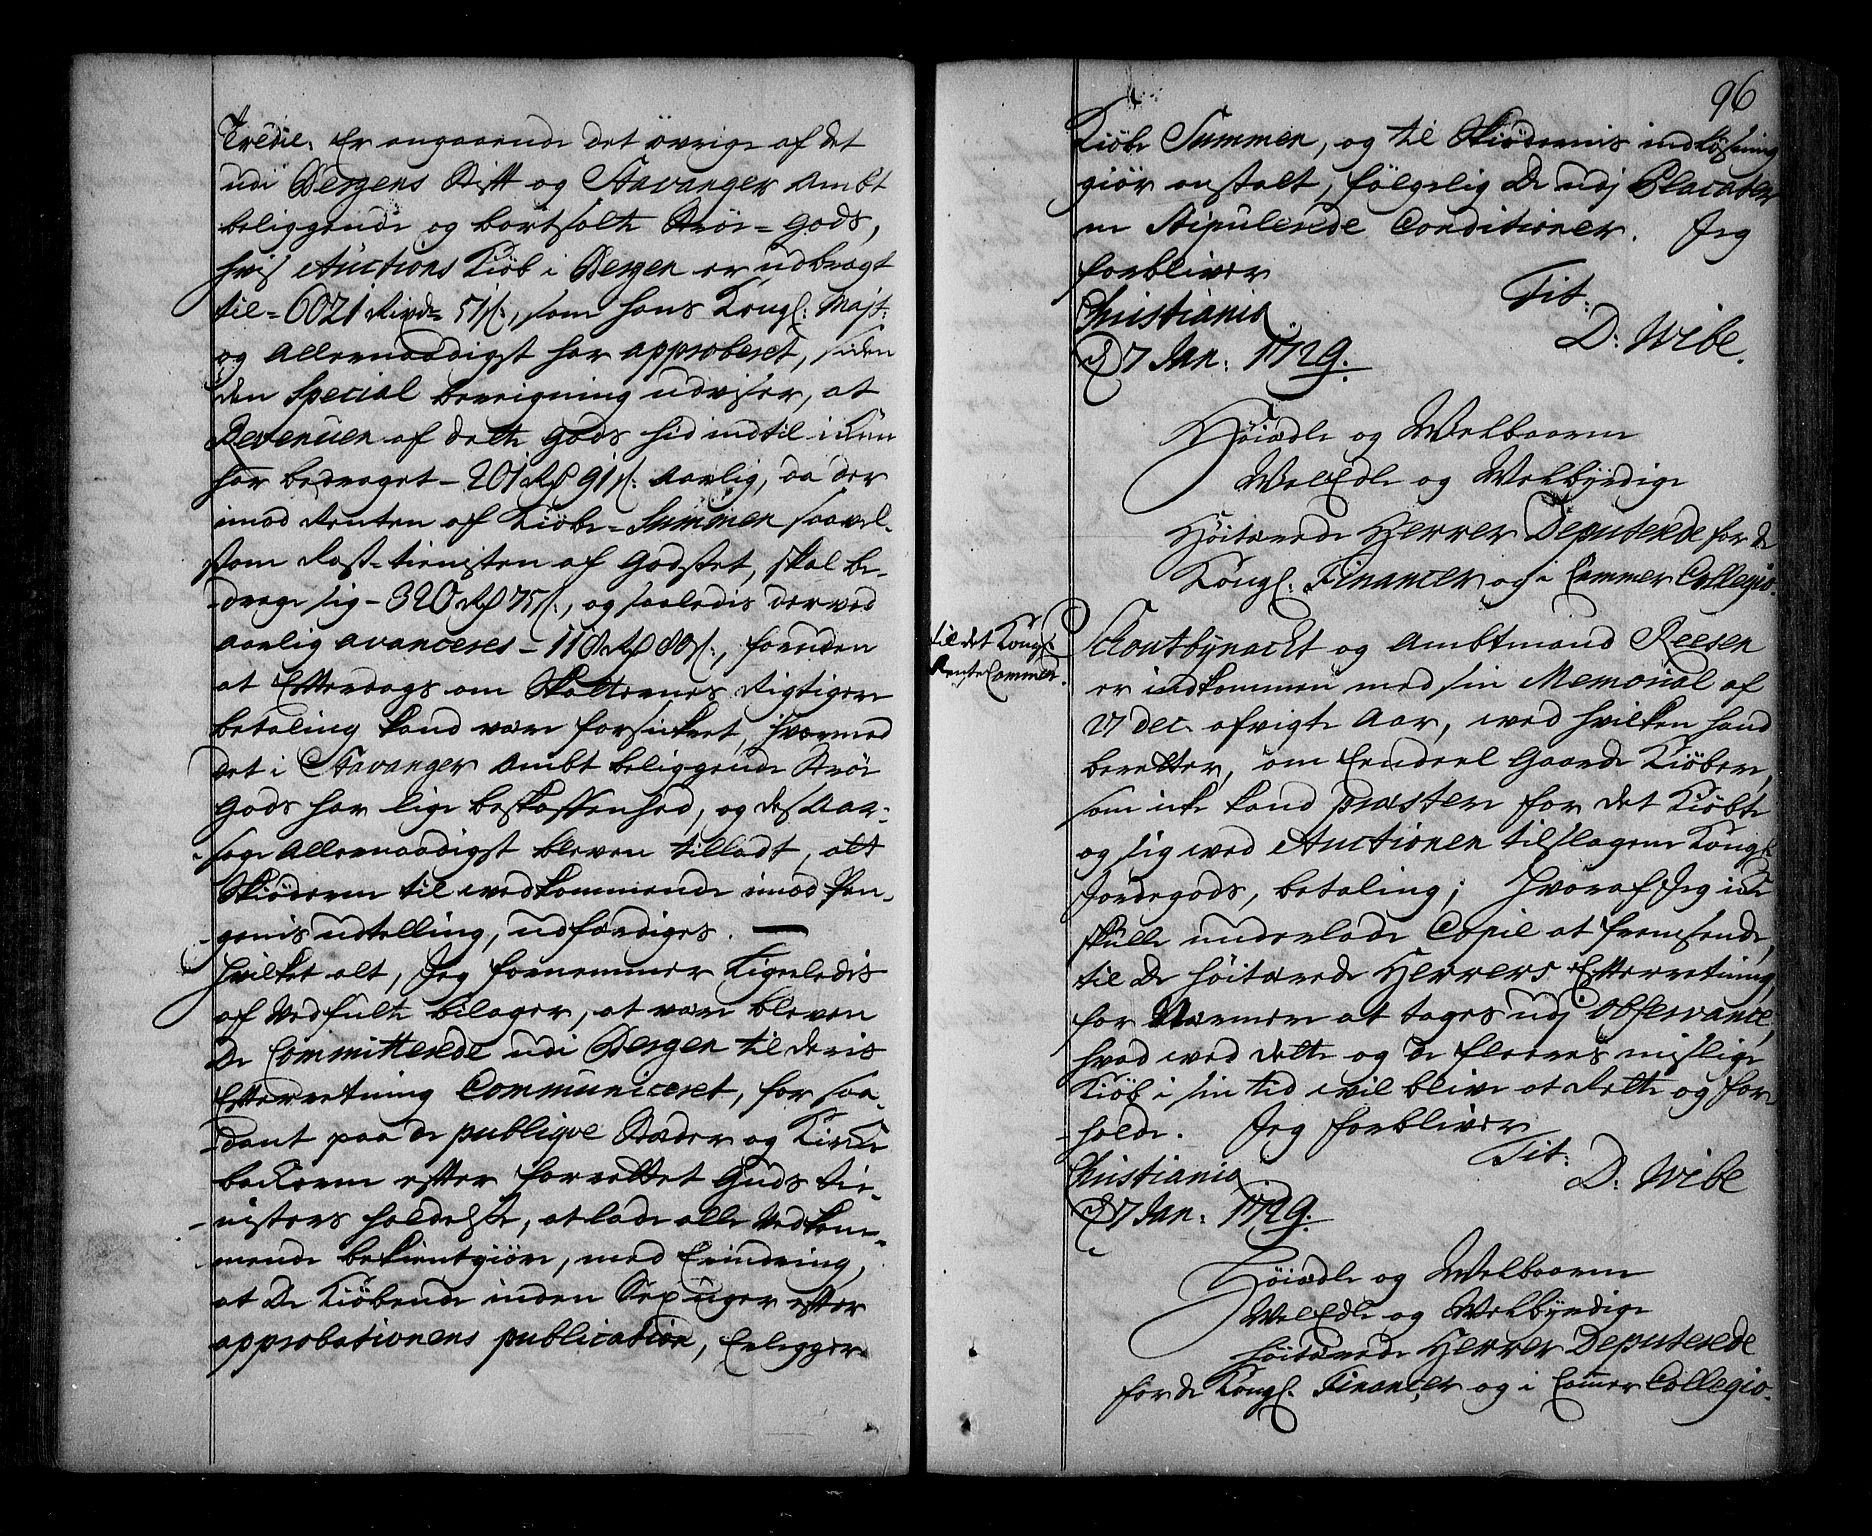 Tredie. Er angaaende det övrige af det
udi Bergens Stift og Stavanger Ambt
beliggende og bortsolte Ströe=Gods,
hvis Auctions Kiöb i Bergen er udbragt
til=6021 Rixd= 51 s:, som hans Kongl: Majt:
og Allernaadigst har approberet, siden
den Special beregning udviser, at
Revenuen af dette Gods hid indtil ikun
har bedraget - 201 Rd 91 s: Aarlig, da der
imod Renten af Kiöbe=Summen saavel-
som Ross-tienisten af Godset, skal be-
-drage sig - 320 Rd 75 s:, og saaledis derved
aarlig avanceres - 118 Rd 80 s:, foruden
at Efterdags om Skatternes Rigtigere
betaling kand være forsickret, hvormed
det i Stavanger Ambt beliggende Ströe
Gods har lige beskaffenhed, og des Aar-
-sage Allernaadigst bleven tilladt, at
Skiöderne til vedkommende imod Pen-
-genis udtelling, udfærdiges. —
Hvilket alt, Jeg fornemmer Ligeledis
af Vedfulte bilager, at være bleven
De Committerede udi Bergen til deris
Efterretning Communiceret, for saa-
-dant paa de publiqve Stæder og Kirke
backerne efter forrettet Guds tie-
-nistes holdelse, at lade alle Vedkom-
mende bekientgiöre, med Erindring,
at De Kiöbende inden Sex uger efter
approbationens publication, Erlegger
96
Kiöbe Summen, og til Skiödernis indlösning
giör anstalt, fölgelig De udj Placater
ne Stipulerede Conditioner. Jeg
forbliver
Tit:
Christiania
D: Wibe.
d 7 Jan: 1729.
Höiædle og Welbaarne
WelEdle og Welbyrdige
Höitærede Herrer Deputerede for de
Kongl. Financer og i Cammer Collegio.
til det Kongl:
Rente Cammer.
Schoutbynacht og Ambtmand Reesen
er indkommen med sin Memorial af
27 Dec. afvigte Aar, ved hvilken hand
beretter, om Eendeel Gaarde Kiöbere,
som icke kand præstere for det Kiöbte
og sig ved Auctionen tilslagene Kongl:
Jordegods, betaling; Hvoraf Jeg icke
skulle underlade Copie at fremsende,
til De höitærede Herrers Efterretning,
for Nærmere at tages udj Observance,
hvad ved dette og de fleeres mislige
Kiöb i sin tid vil blive at Rette og for-
-holde. Jeg forbliver
Tit:
Christiania
D: Wibe
d 7 Jan: 1729.
Höiædle og Welbaarne
WelEdle og Welbyrdige
Höitærede Herrer Deputerede
for de Kongl. Financer og i Cammer Collegio.